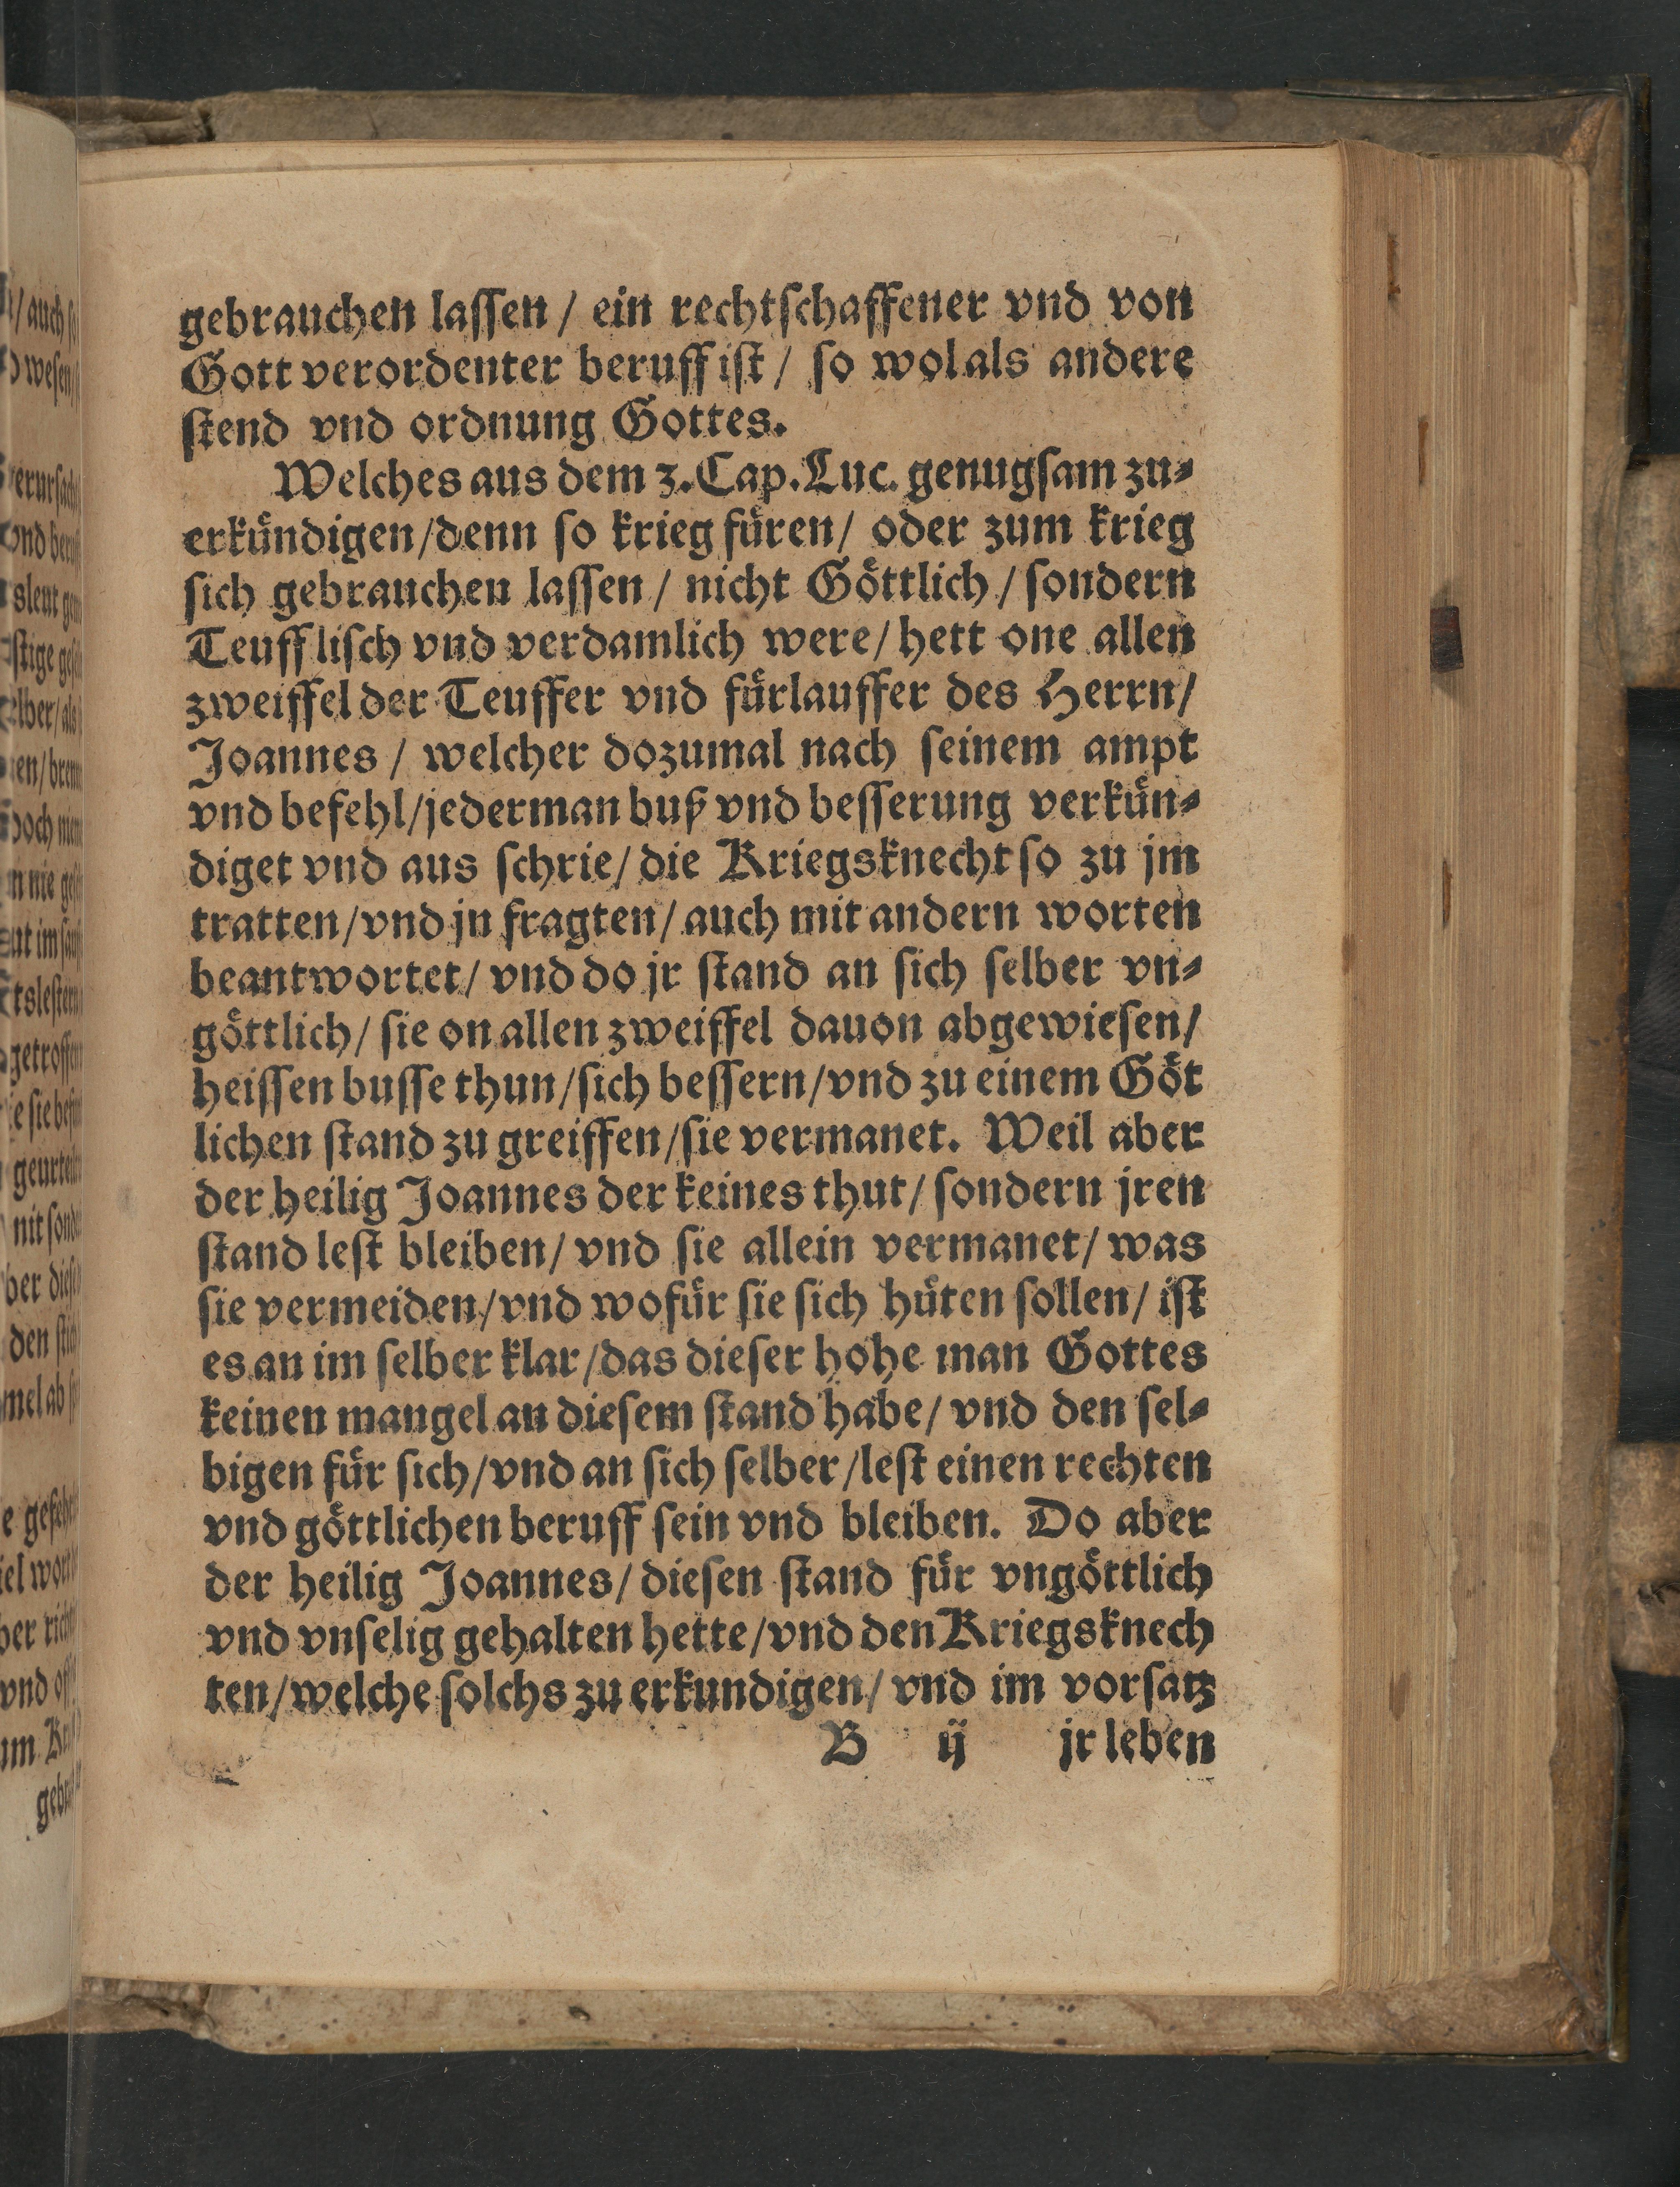 gebrauchen laſſen / ein rechtſchaffener vnd von
Gott verordenter beruff iſt / ſo wol als andere
ſtend vnd ordnung Gottes.
Welches aus dem 3. Cap. Luc. genugſam zu⸗
erkuͤndigen / denn ſo krieg fuͤren / oder zum krieg
ſich gebrauchen laſſen / nicht Goͤttlich / ſondern
Teuffliſch vnd verdamlich were / hett one allen
zweiffel der Teuffer vnd fuͤrlauffer des Herrn /
Joannes / welcher dozumal nach ſeinem ampt
vnd befehl / jederman buß vnd beſſerung verkuͤn⸗
diget vnd aus ſchrie / die Kriegsknecht ſo zu jm
tratten / vnd jn fragten / auch mit andern worten
beantwortet / vnd do jr ſtand an ſich ſelber vn⸗
goͤttlich / ſie on allen zweiffel dauon abgewieſen /
heiſſen buſſe thun / ſich beſſern / vnd zu einem Goͤt
lichen ſtand zu greiffen / ſie vermanet. Weil aber
der heilig Joannes der keines thut / ſondern jren
ſtand leſt bleiben / vnd ſie allein vermanet / was
ſie vermeiden / vnd wofuͤr ſie ſich huͤten ſollen / iſt
es an im ſelber klar / das dieſer hohe man Gottes
keinen mangel an dieſem ſtand habe / vnd den ſel⸗
bigen fuͤr ſich / vnd an ſich ſelber / leſt einen rechten
vnd goͤttlichen beruff ſein vnd bleiben. Do aber
der heilig Joannes / dieſen ſtand fuͤr vngoͤttlich
vnd vnſelig gehalten hette / vnd den Kriegsknech
ten / welche ſolchs zu erkundigen / vnd im vorſatz
B ij jr leben